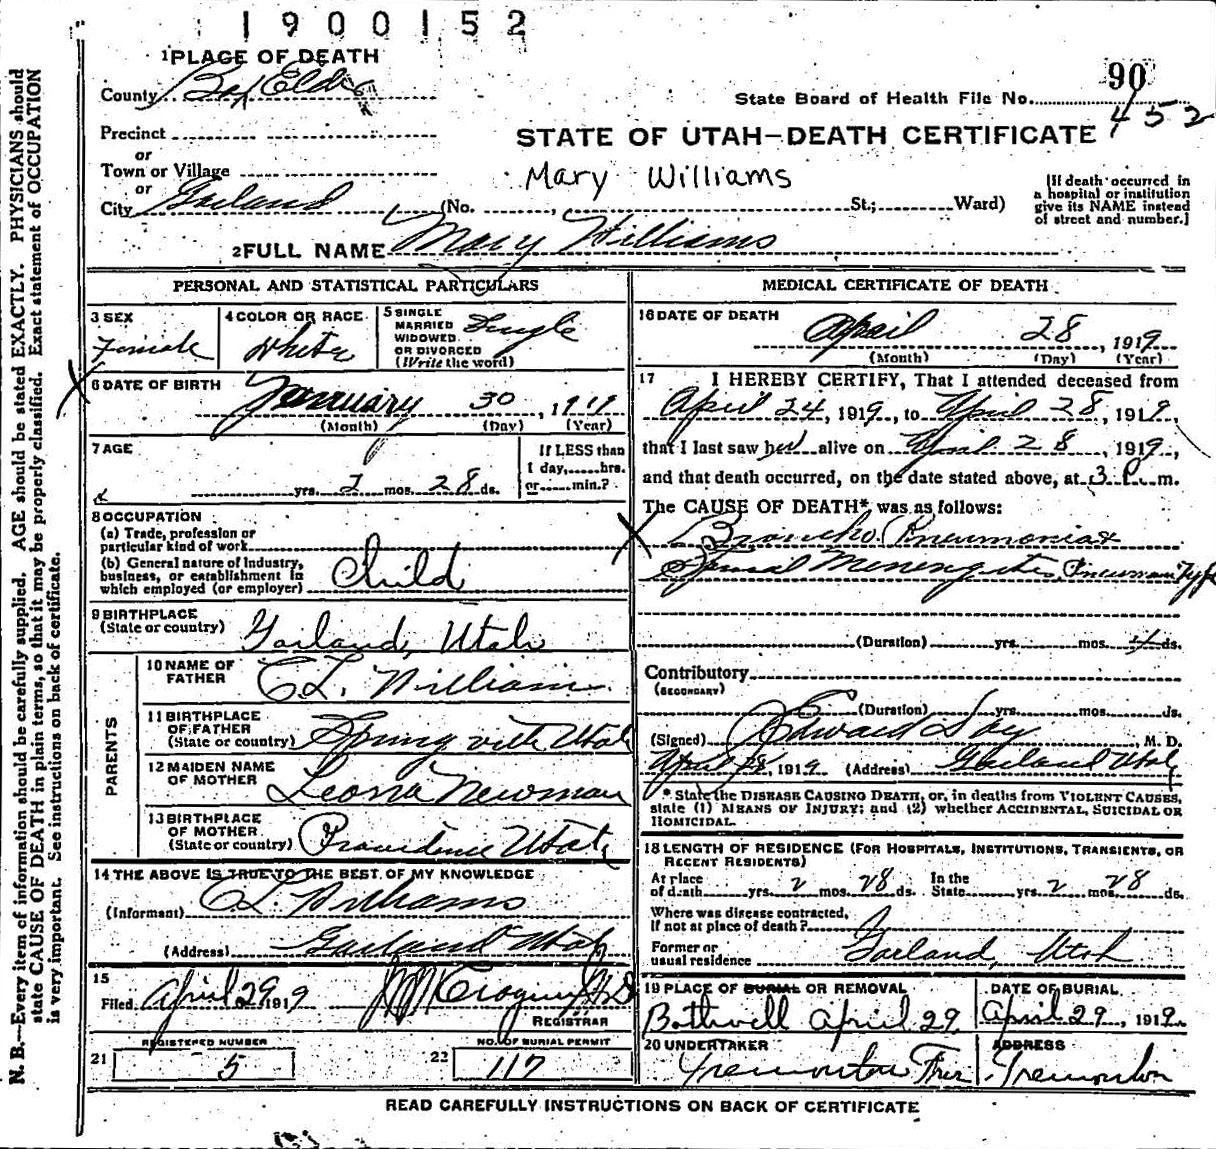 1900152
1 PLACE OF DEATH
County Box Elder
90
State Board of Health File No. 452
Precinct
or
Town or Village
or
City Garland (No. , St.; Ward)
STATE OF UTAH—DEATH CERTIFICATE
Mary Williams
[If death occurred in
a hospital or institution
give its NAME instead
of street and number.]
2 FULL NAME Mary Williams
PERSONAL AND STATISTICAL PARTICULARS
3 SEX
Female
4 COLOR OR RACE
White
5 SINGLE
MARRIED
WIDOWED
OR DIVORCED
(Write the word)
Single
6 DATE OF BIRTH
January 30, 1919
(Month) (Day) (Year)
7 AGE
yrs. 2 mos. 28 ds.
If LESS than
1 day, hrs.
or min.?
8 OCCUPATION
(a) Trade, profession or
particular kind of work
(b) General nature of Industry,
business, or establishment in
which employed (or employer)
Child
9 BIRTHPLACE
(State or country) Garland, Utah
PARENTS
10 NAME OF
FATHER C L. Williams
11 BIRTHPLACE
OF FATHER
(State or country) Spring ville Utah
12 MAIDEN NAME
OF MOTHER Leona Newman
13 BIRTHPLACE
OF MOTHER
(State or country) Providence Utah
14 THE ABOVE IS TRUE TO THE BEST OF MY KNOWLEDGE
(Informant) C L. Williams
(Address) Garland Utah
15
Filed April 29, 1919
REGISTRAR
REGISTERED NUMBER
21 5
NO. OF BURIAL PERMIT
22 117
MEDICAL CERTIFICATE OF DEATH
16 DATE OF DEATH
April 28, 1919
(Month) (Day) (Year)
17 I HEREBY CERTIFY, That I attended deceased from
April 24, 1919, to April 28, 1919,
that I last saw her alive on April 28, 1919,
and that death occurred, on the date stated above, at 3 P. m.
The CAUSE OF DEATH* was as follows:
Broncho Pneumonia &
Spinal Menengites
(Duration) yrs. mos. 4 ds.
Contributory
(SECONDARY)
(Duration) yrs. mos. ds.
(Signed) Edward M. D.
April 28, 1919 (Address) Garland Utah
* State the DISEASE CAUSING DEATH, or, in deaths from VIOLENT CAUSES,
state (1) MEANS OF INJURY; and (2) whether ACCIDENTAL, SUICIDAL OR
HOMICIDAL.
18 LENGTH OF RESIDENCE (FOR HOSPITALS, INSTITUTIONS, TRANSIENTS, OR
RECENT RESIDENTS)
At place
of death yrs. 2 mos. 28 ds.
In the
State yrs. 2 mos. 28 ds.
Where was disease contracted,
If not at place of death?
Former or
usual residence Garland, Utah
19 PLACE OF BURIAL OR REMOVAL
Bothwell April 29
DATE OF BURIAL
April 29, 1919
20 UNDERTAKER
Tremonton
ADDRESS
Tremonton
READ CAREFULLY INSTRUCTIONS ON BACK OF CERTIFICATE
N. B.—Every item of information should be carefully supplied. AGE should be stated EXACTLY. PHYSICIANS should
state CAUSE OF DEATH in plain terms, so that it may be properly classified. Exact statement of OCCUPATION
is very important. See instructions on back of certificate.